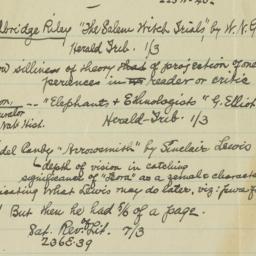 lbridge Riley "The Salem Witch Trials", by W. N. G
Herald Trib. 1/3
ow silliness of theory that of projection of one
periences in to reader or critic
on. -- "Elephants & Ethnologists" G. Elliot
Nat. Hist. Herald-Trib. 1/3
del Canby "Arrowsmith" by Sinclair Lewis
depth of vision in catching
significance of "Leora" as a general character
icating what Lewis may do later, viz:
! But then he had 5/6 of a page.
Sat. Rev. of Lit. 7/3
236E.39